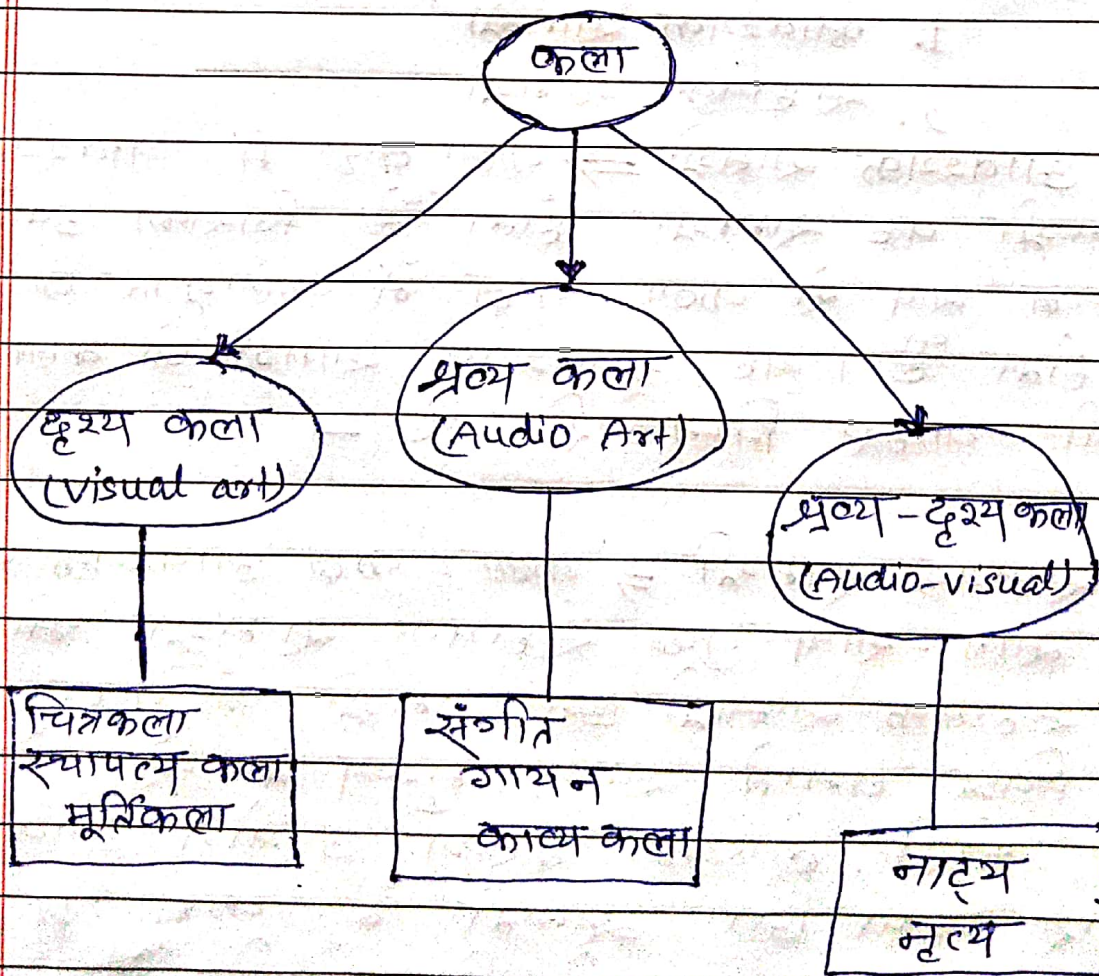 कला
दृश्य कला
(visual art)
श्रव्य कला
(Audio Art)
श्रव्य - दृश्य कला
(Audio-visual)
चित्रकला
स्थापत्य कला
मूर्तिकला
संगीत
गायन
काव्य कला
नाट्य
नृत्य